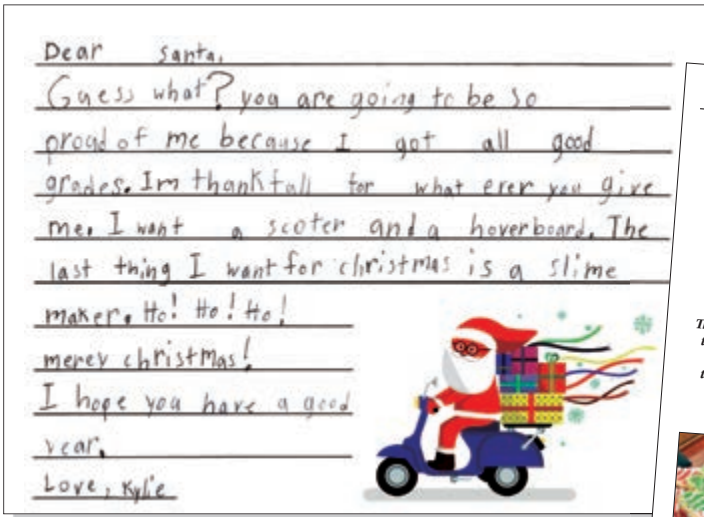 Dear Santa,
Guess what? you are going to be so
proud of me because I got all good
grades. Im thankfall for what ever you give
me. I want a scoter and a hoverboard. The
last thing I want for christmas is a slime
maker. Ho! Ho! Ho!
merey christmas!
I hope you have a good
year.
Love, Kylie